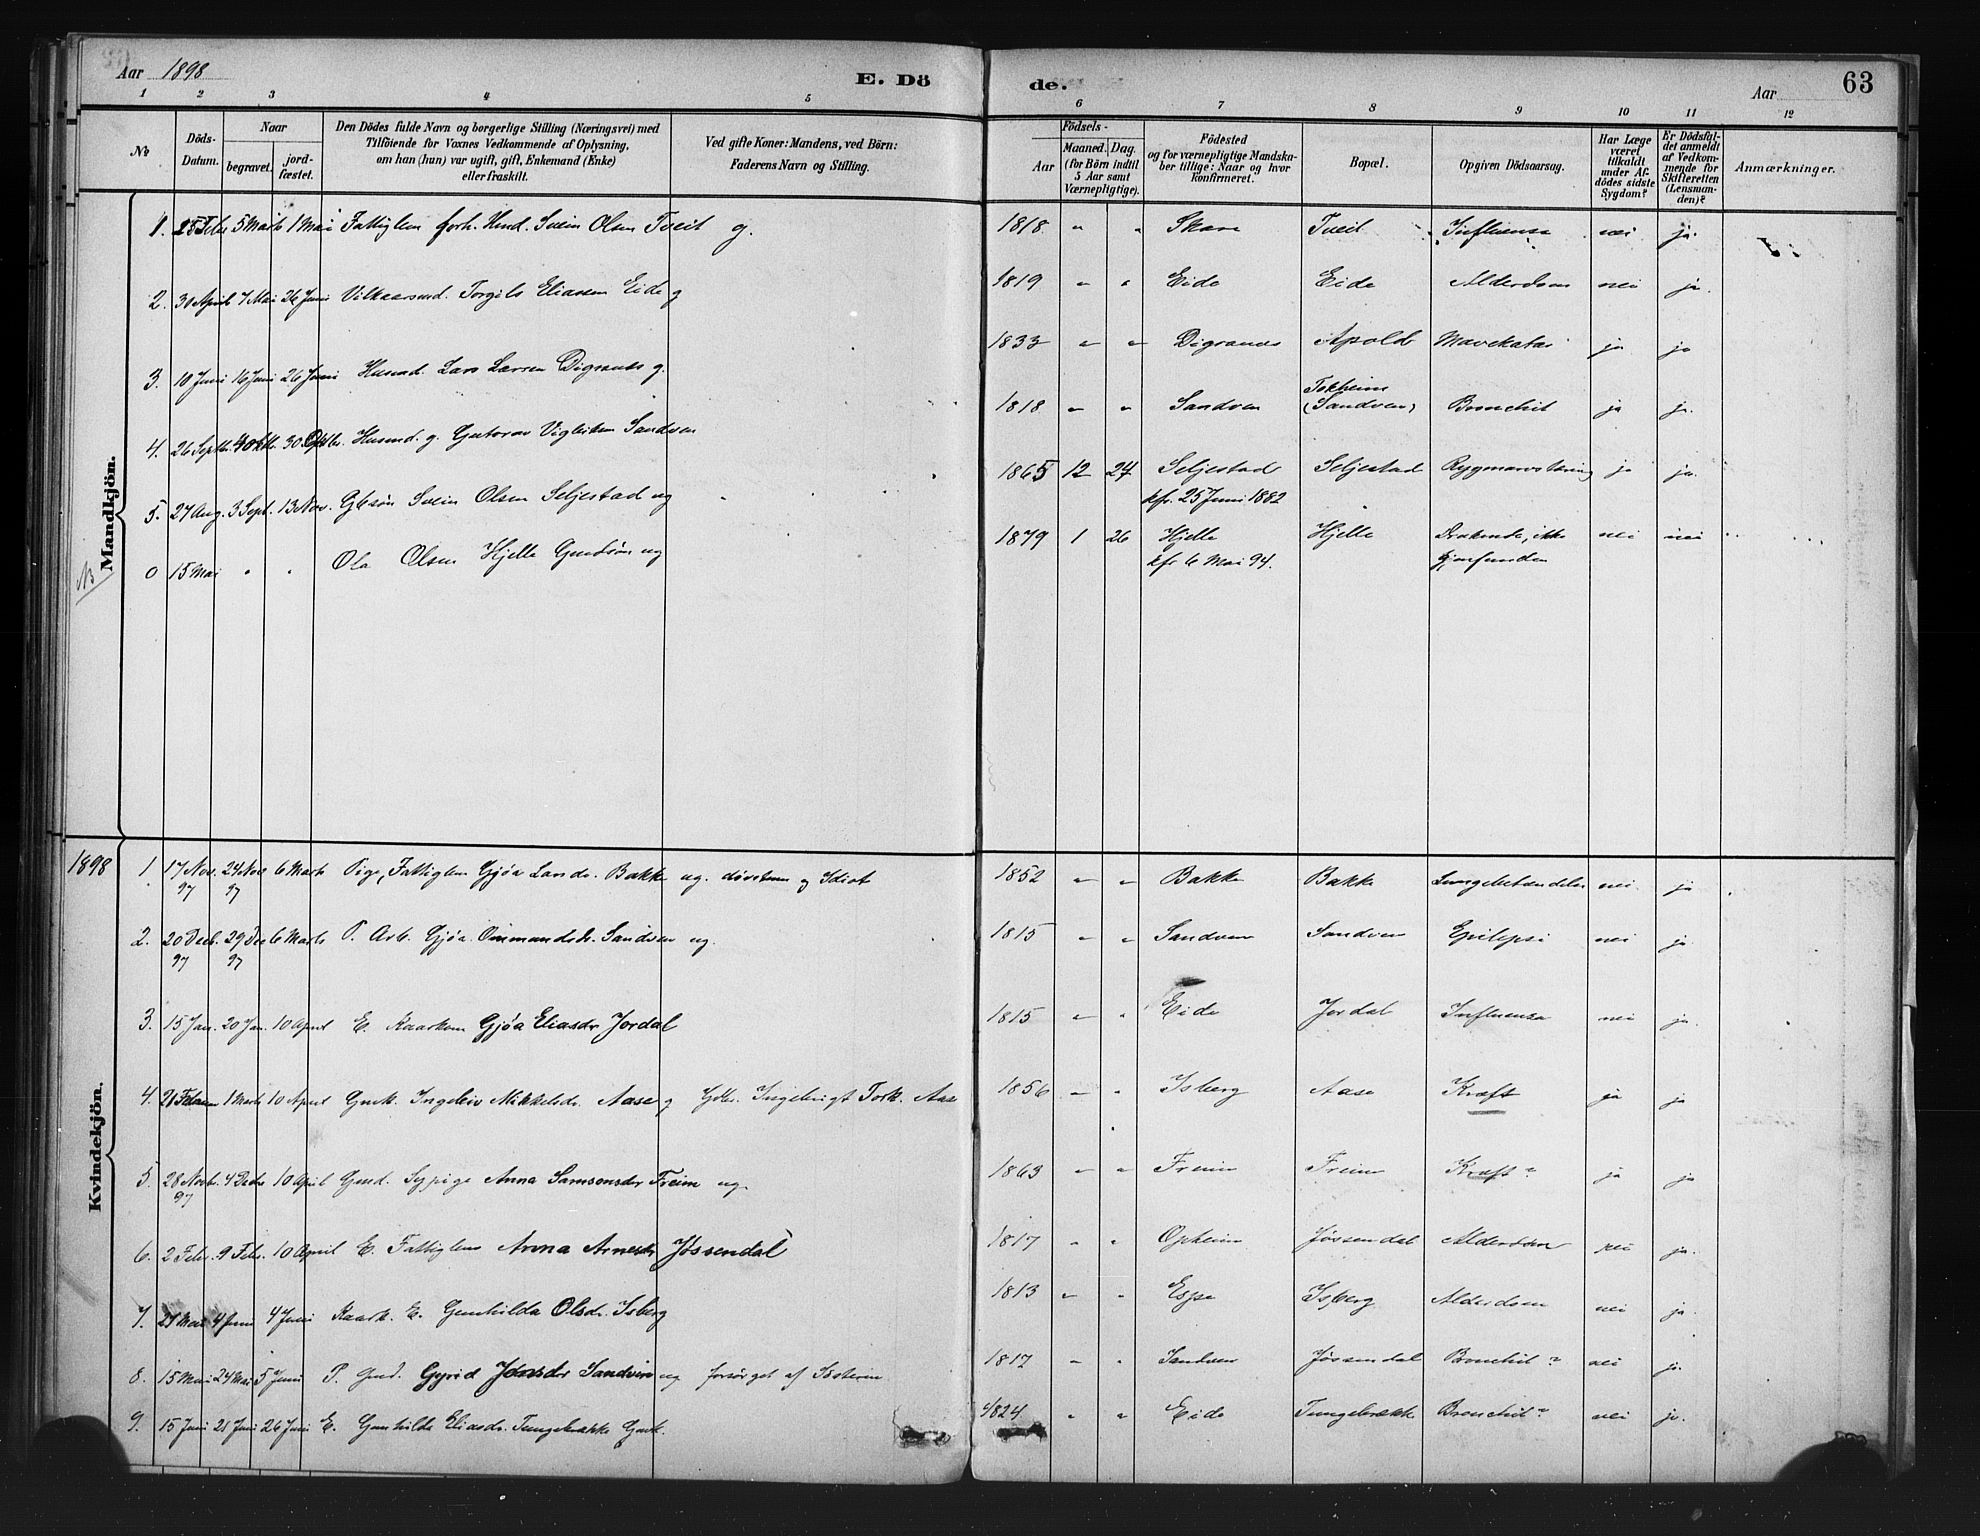 Aar 1898
E. Döde.
Aar
63
1 2 3 4 5 6 7 8 9 10 11 12
No
Döds-Datum.
Naar
begravet.
jordfæstet.
Den Dödes fulde Navn og borgerlige Stilling (Næringsvei) med
Tilföiende for Voxnes Vedkommende af Oplysning,
om han (hun) var ugift, gift, Enkemand (Enke)
eller fraskilt.
Ved gifte Koner: Mandens, ved Börn:
Faderens Navn og Stilling.
Födsels-
Aar
Maaned. Dag.
(for Börn indtil
5 Aar samt
Værnepligtige).
Födested
og for værnepligtige Mandska-
ber tillige: Naar og hvor
konfirmeret.
Bopæl.
Opgiven Dödsaarsag.
Har Læge
været
tilkaldt
under Af-
dödes sidste
Sygdom?
Er Dödsfal-
det anmeldt
af Vedkom-
mende for
Skifteretten
(Lensman-
den)?
Anmærkninger.
Mandkjön.
1. 25 Febr 5 Marts 1 Mai Fattiglem forh. Husd. Svein Olsen Tveit g. 1818 " " Skare Tveit Influensa nei ja
2. 30 April 7 Mai 26 Juni Vilkaarsmd. Torgils Eliassen Eide g 1819 " " Eide Eide Alderdom nei ja.
3. 10 Juni 16 Juni 26 Juni Husmd. Lars Larsen Digranes g. 1833 " " Digranes Apold Mavekatar ja ja
4. 26 Septbr. 4 Oktbr. 30 Oktbr. Husmd. g. Guttorm Vigleiksen Sandven 1818 " " Sandven Tokheim
(Sandven) Bronchit ja ja.
5. 27 Aug. 3 Sept. 13 Nov. Gbsøn Svein Olsen Seljestad ug 1865 12 24 Seljestad Seljestad Rygmarvstæring ja ja.
kfr. 25 Juni 1882
NB 0 15 Mai " " Ola Olsen Hjelle Gmdsøn ug 1879 1 26 Hjelle Hjelle Druknede, ikke nei nei
kfr 6 Mai 94. gjenfunden
Kvindekjön.
1898 1 17 Nov. 24 Nov 6 Marts Pige, Fattiglem Gjøa Larsdr. Bakke ug. døvstum og Idiot 1852 " " Bakke Bakke Lungebetændelse nei ja
97 97
2. 20 Decb. 29 Dec 6 Marts P. Arb. Gjøa Ommundsdr. Sandven ug. 1815 " " Sandven Sandven Epilepsi nei ja
97 97
3. 15 Jan. 20 Jan. 10 April E. Kaarkone Gjøa Eliasdr Jordal 1815 " " Eide Jordal Influensa nei ja.
4. 21 Februar 1 Marts 10 April Gmk. Ingeleiv Mikkelsdr. Aase g Gbr. Ingebrigt Tork. Aase 1856 " " Isberg Aase Kræft ja ja
5. 28 Novb. 4 Decbr 10 April Gmd. Sypige Anna Samsonsdr Freim ug. 1863 " " Freim Freim Kræft? ja ja
97
6. 2 Febr. 9 Febr. 10 April E. Fattiglem Anna Arnesdr Jøssendal 1817 " " Opheim Jøssendal Alderdom nei ja.
7. 4 Juni 4 Juni Kaark. E. Gunhilda Olsdr. Isberg 1813 " " Espe Isberg Alderdom nei ja.
8. 15 Mai 24 Mai 5 Juni P. Gmd. Gyrid Jonsdr Sandven ug forsørget af Søsteren 1817 " " Sandven Jøssendal Bronchit? nei ja.
9. 15 Juni 21 Juni 26 Juni E. Gunhilda Eliasdr. Tungebrække Gmk. 1824 " " Eide Tungebrække Bronchit? nei ja.